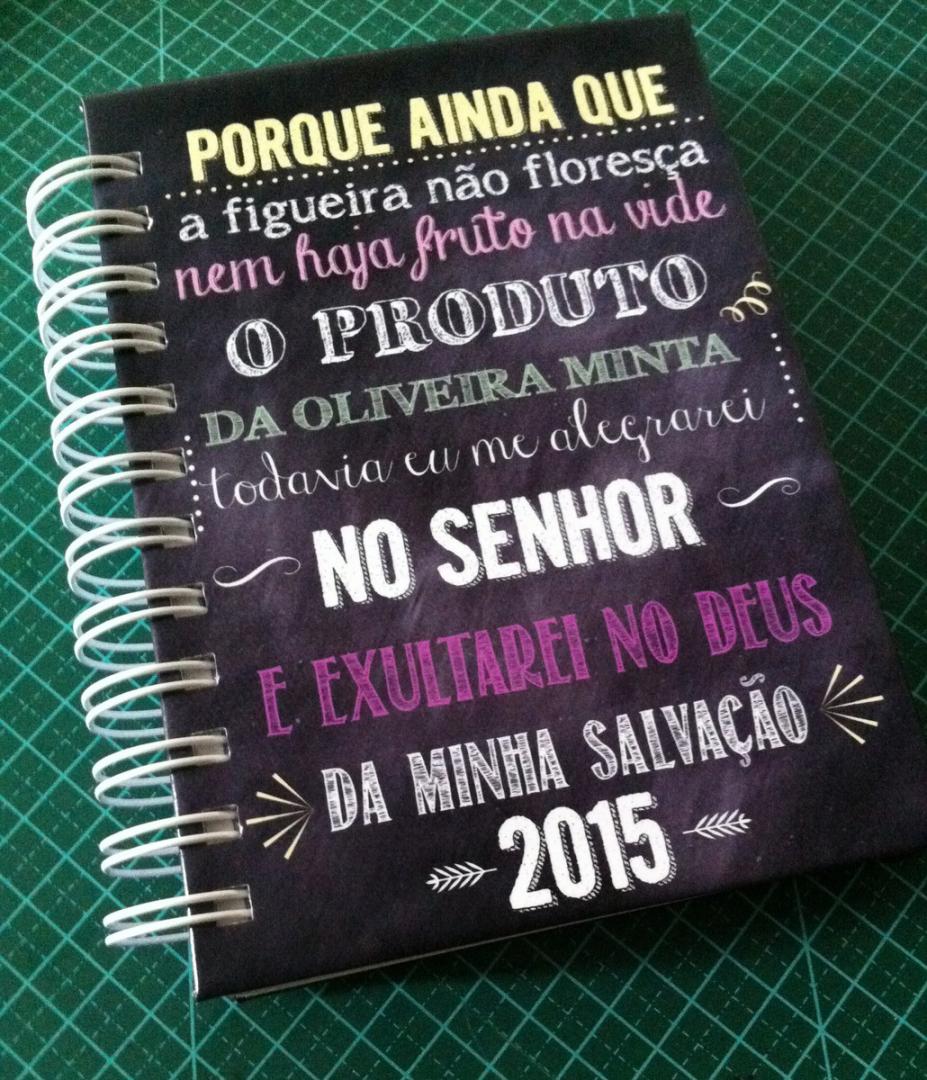 PORQUE AINDA QUE
a figueira não floresça
nem haja fruto na vide
O PRODUTO
DA OLIVEIRA MINTA
todavia eu me alegrarei
NO SENHOR
E EXULTAREI NO DEUS
DA MINHA SALVAÇÃO
2015